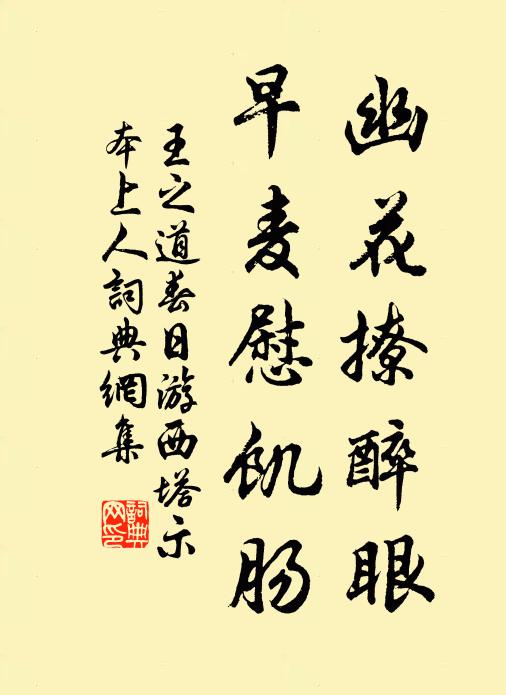 幽花撩醉眼
早麦慰飢肠
王之道春日游西塔示
本上人詞典網集
詞典
网印